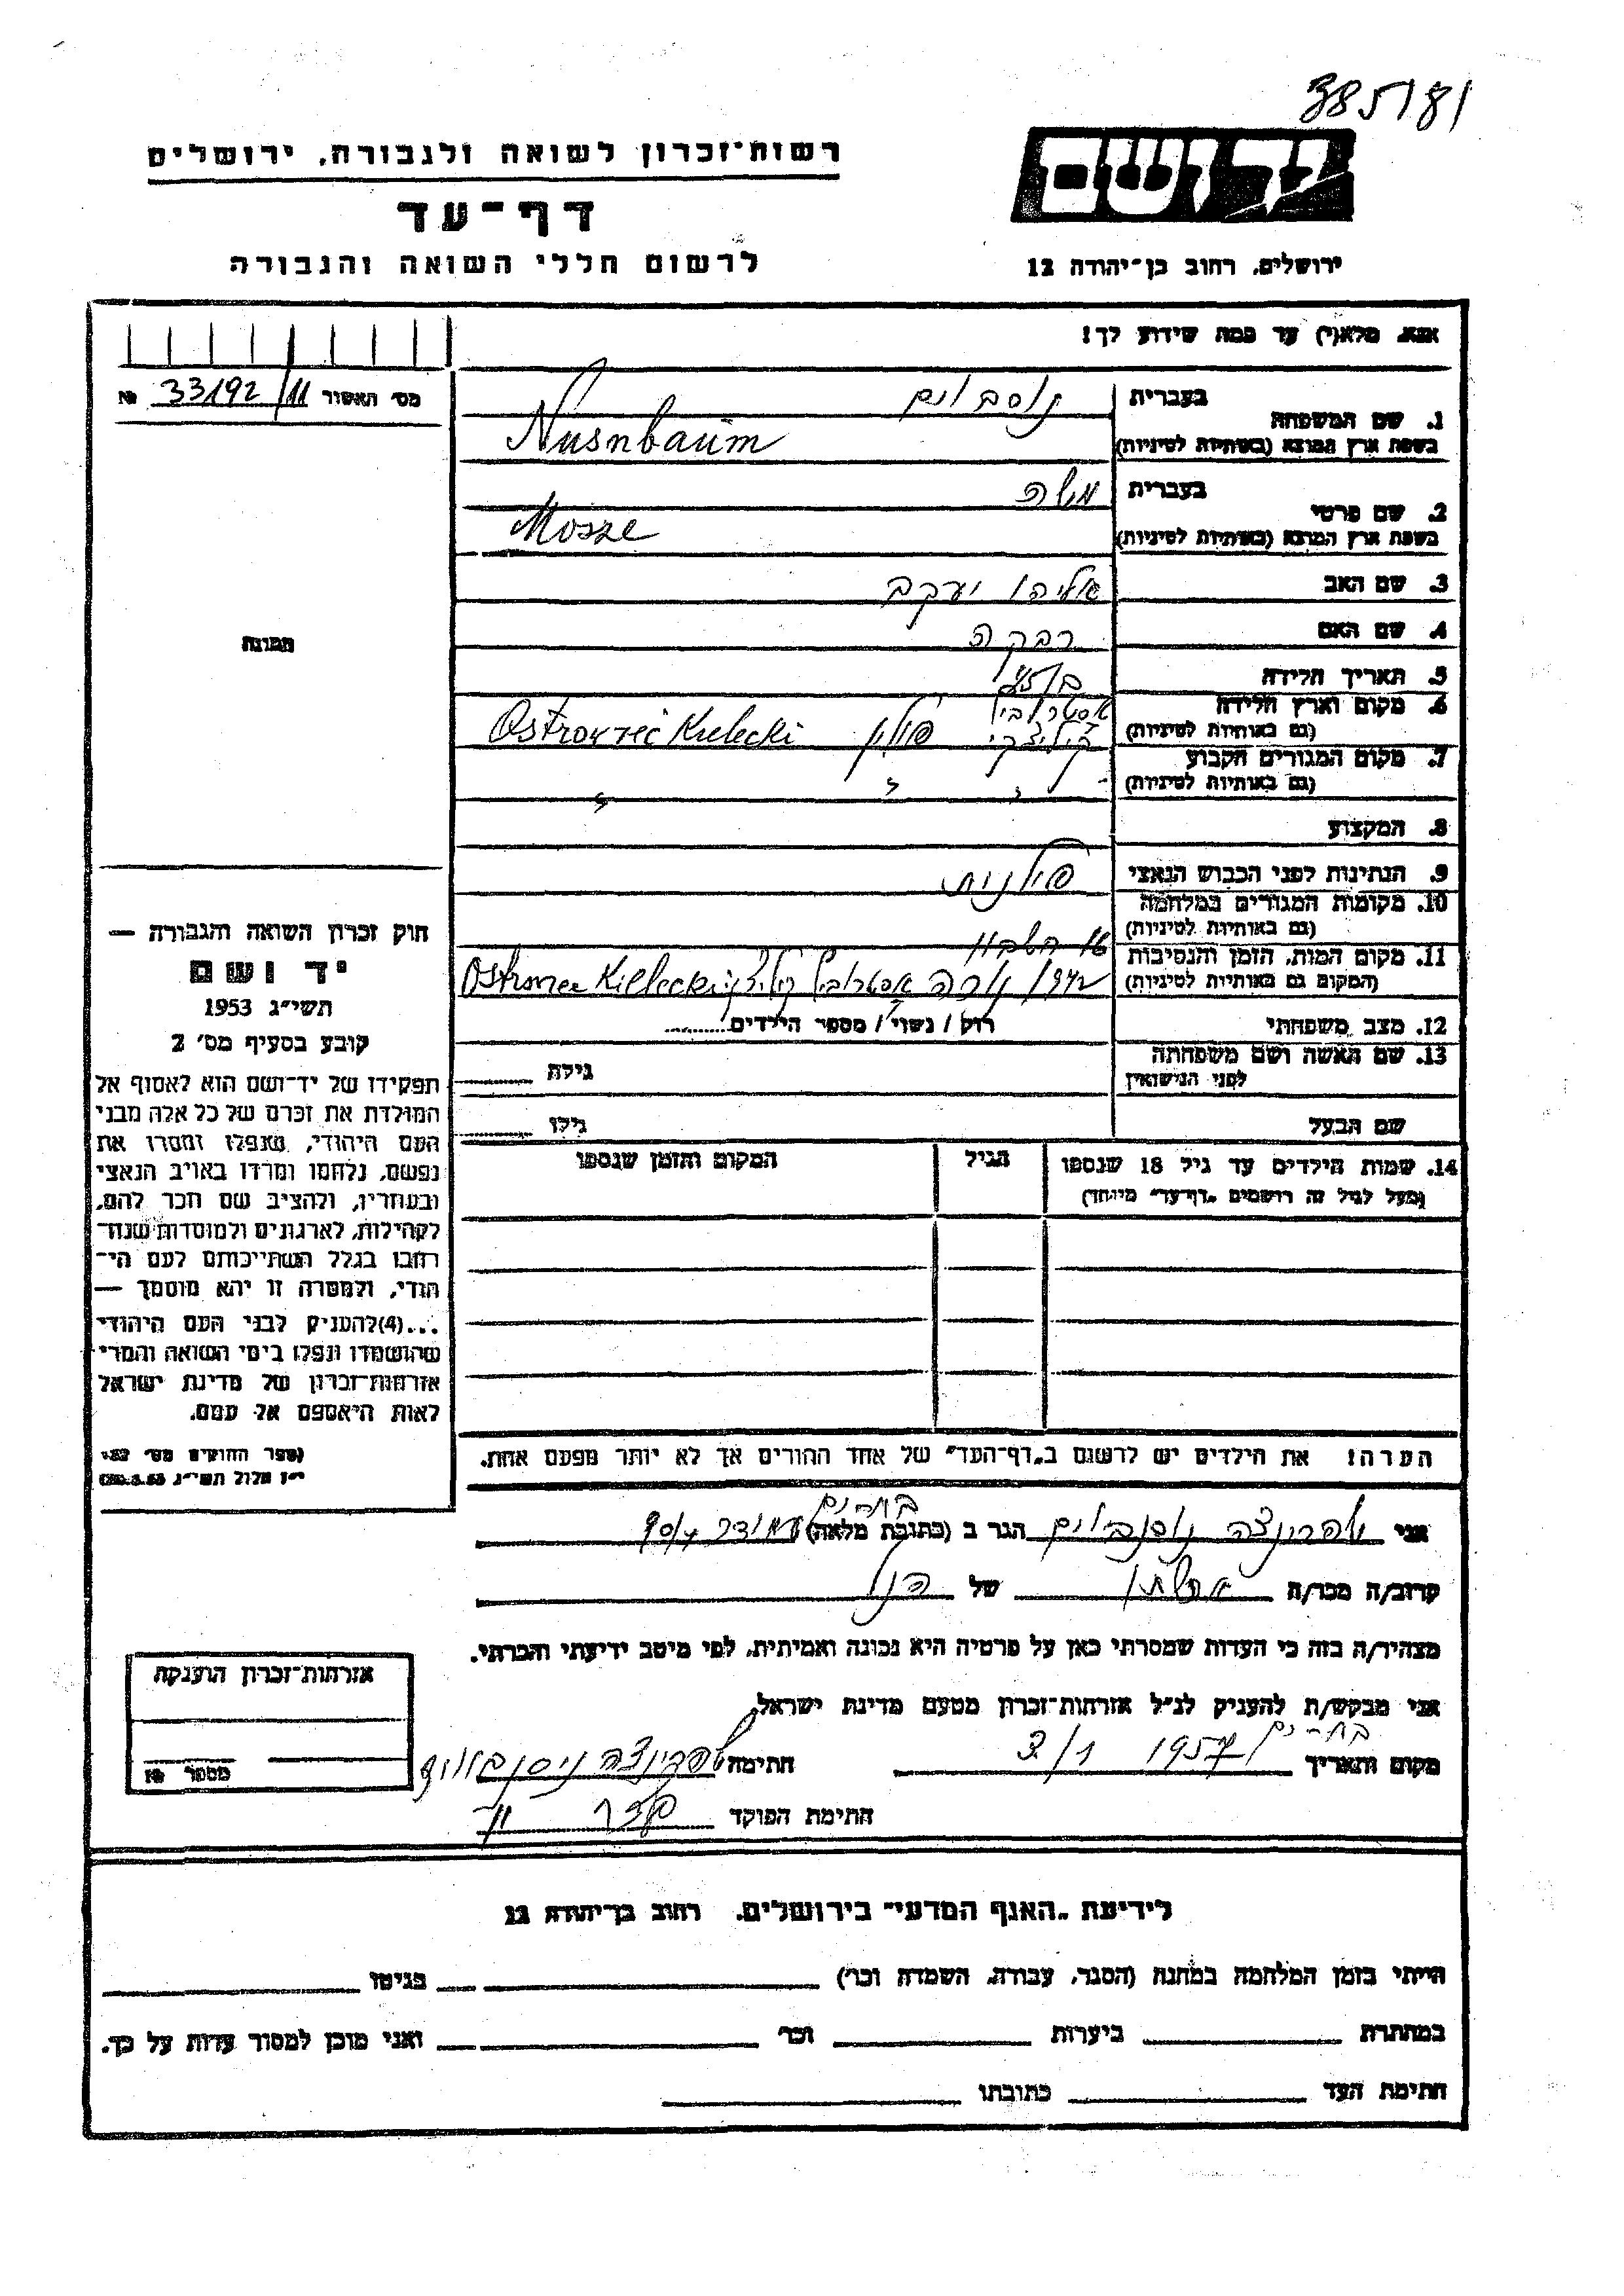 385/81
רשות־זכרון לשואה ולגבורה, ירושלים
יד ושם
דף־עד
לרשום חללי השואה והגבורה
ירושלים, רחוב בן־יהודה 12
אנא, מלא(י) עד כמה שידוע לך!
מס׳ האשור 33192/11 №
1. שם המשפחה
בעברית נוסבוים
בשפת ארץ המוצא (באותיות לטיניות) Nusnbaum
2. שם פרטי
בעברית משה
בשפת ארץ המוצא (באותיות לטיניות) Mosze
3. שם האב אליהו יעקב
4. שם האם רבקה
תמונה
5. תאריך הלידה
6. מקום וארץ הלידה
(גם באותיות לטיניות) קילצקי פולין Ostrowiec Kielecki
7. מקום המגורים הקבוע
(גם באותיות לטיניות) " " "
8. המקצוע
9. הנתינות לפני הכבוש הנאצי פולנית
10. מקומות המגורים במלחמה
(גם באותיות לטיניות)
11. מקום המות, הזמן והנסיבות
(המקום גם באותיות לטיניות) 1942 Ostrowiec Kielecki
12. מצב משפחתי רוק / נשוי / מספר הילדים........
13. שם האשה ושם משפחתה
לפני הנישואין גילה
שם הבעל גילו
14. שמות הילדים עד גיל 18 שנספו הגיל המקום והזמן שנספו
(מעל לגיל זה רושמים „דף־עד" מיוחד)
הערה! את הילדים יש לרשום ב„דף־העד" של אחד ההורים אך לא יותר מפעם אחת.
חוק זכרון השואה והגבורה —
יד ושם
תשי״ג 1953
קובע בסעיף מס׳ 2
תפקידו של יד־ושם הוא לאסוף אל
המולדת את זכרם של כל אלה מבני
העם היהודי, שנפלו ומסרו את
נפשם, נלחמו ומרדו באויב הנאצי
ובעוזריו, ולהציב שם וזכר להם,
לקהילות, לארגונים ולמוסדות שנח־
רבו בגלל השתייכותם לעם הי־
הודי, ולמטרה זו יהא מוסמך —
...(4) להעניק לבני העם היהודי
שהושמדו ונפלו בימי השואה והמרי
אזרחות־זכרון של מדינת ישראל
לאות היאספם אל עמם.
(ספר החוקים מס׳ 132.
י״ז אלול תשי״ג 28.8.53)
אני שפרינצה נוסנבוים הגר ב (כתובת מלאה)
קרוב/ה מכר/ה אשתו של הנ״ל
מצהיר/ה בזה כי העדות שמסרתי כאן על פרטיה היא נכונה ואמיתית, לפי מיטב ידיעתי והכרתי.
אני מבקש/ת להעניק לנ״ל אזרחות־זכרון מטעם מדינת ישראל.
מקום ותאריך 3/1 1957 חתימה שפרינצה ניסנבוים
חתימת הפוקד
אזרחות־זכרון הוענקה
מספר №
לידיעת „האגף המדעי" בירושלים, רחוב בן־יהודה 12
הייתי בזמן המלחמה במחנה (הסגר, עבודה, השמדה וכר׳) בגיטו
במחתרת ביערות וכר׳ ואני מוכן למסור עדות על כך.
חתימת העד כתובתו